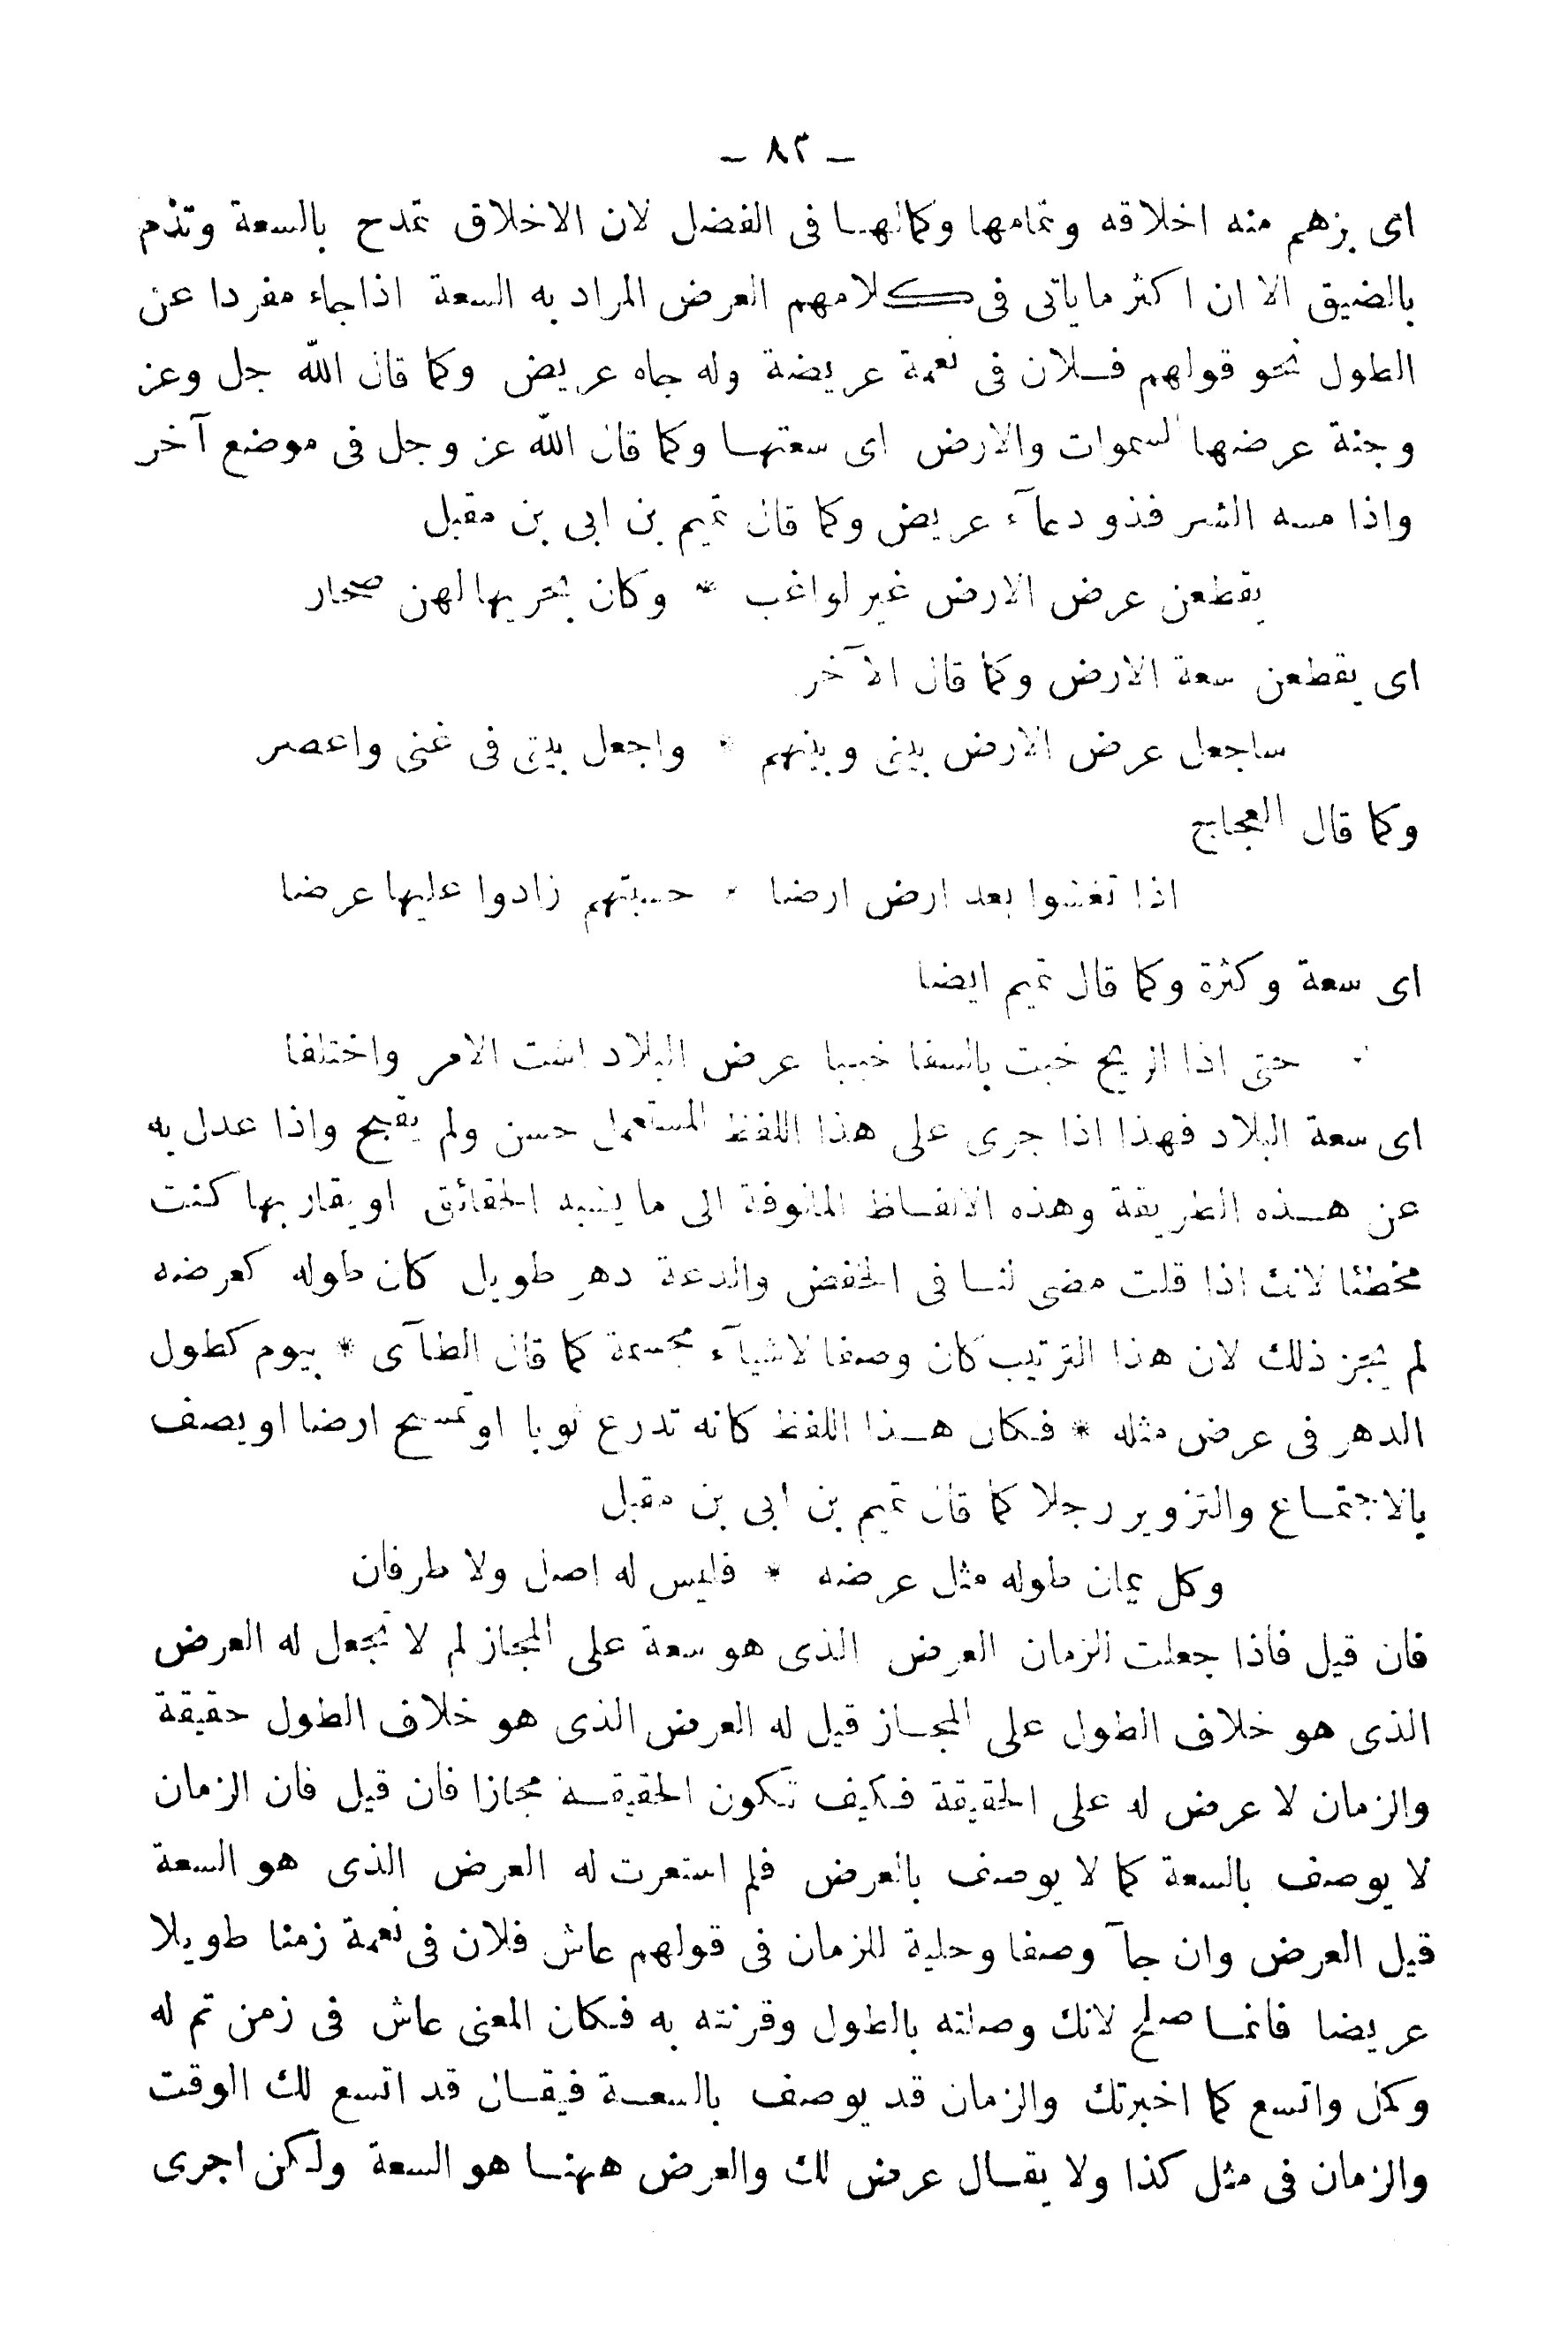 ـ ٨٣ ـ
اى بزهم منه اخلاقه وتمامها وكمالهـا فى الفضل لان الاخلاق تمدح بالسعة وتذم
بالضيق الا ان اكثر ما ياتى فى كلامهم العرض المراد به السعة اذا جاء مفردا عن
الطول نحو قولهم فـلان فى نعمة عريضة وله جاه عريض وكما قال الله جل وعز
وجنة عرضها السموات والارض اى سعتهـا وكما قال الله عز وجل فى موضع آخر
واذا مسه الشر فذو دعآء عريض وكما قال تميم بن ابى بن مقبل
يقطعن عرض الارض غير لواغب * وكان بحريها لهن صحار
اى يقطعن سعة الارض وكما قال الآخر
ساجعل عرض الارض بينى وبينهم * واجعل بيتى فى غنى واعصر
وكما قال العجاج
اذا تغشوا بعد ارض ارضا * حسبتهم زادوا عليها عرضا
اى سعة وكثرة وكما قال تميم ايضا
حتى اذا الريح خبت بالسفا خببا عرض البلاد اشت الامر واختلفا
اى سعة البلاد فهذا اذا جرى على هذا اللفظ المستعمل حسن ولم يقبح واذا عدل به
عن هـذه الطريقة وهذه الالفـاظ المألوفة الى ما يشبه الحقائق او يقاربها كنت
مخطئا لانك اذا قلت مضى لنـا فى الخفض والدعة دهر طويل كان طوله كعرضه
لم يجز ذلك لان هذا الترتيب كان وصفا لاشيآء مجسمة كما قال الطآى * بيوم كطول
الدهر فى عرض مثله * فكان هـذا اللفظ كانه تدرع ثوبا او تمسح ارضا او يصف
بالاجتمـاع والتزوير رجلا كما قال تميم بن ابى بن مقبل
وكل يمان طوله مثل عرضه * فليس له اصل ولا طرفان
فان قيل فاذا جعلت للزمان العرض الذى هو سعة على المجاز لم لا تجعل له العرض
الذى هو خلاف الطول على المجـاز قيل له العرض الذى هو خلاف الطول حقيقة
والزمان لا عرض له على الحقيقة فكيف تكون الحقيقـة مجازا فان قيل فان الزمان
لا يوصف بالسعة كما لا يوصف بالعرض فلم استعرت له العرض الذى هو السعة
قيل العرض وان جآ وصفا وحلية للزمان فى قولهم عاش فلان فى نعمة زمنا طويلا
عريضا فانمـا صلح لانك وصلته بالطول وقرنته به فكان المعنى عاش فى زمن تم له
وكمل واتسع كما اخبرتك والزمان قد يوصف بالسعـة فيقـال قد اتسع لك الوقت
والزمان فى مثل كذا ولا يقـال عرض لك والعرض ههنـا هو السعة ولكن اجرى